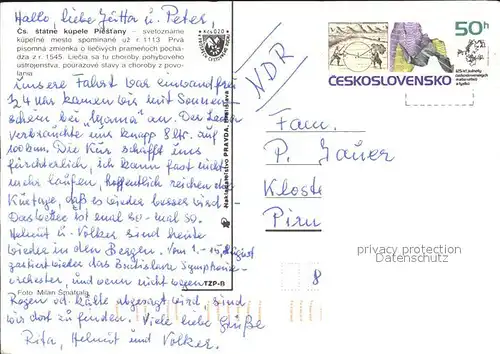 Hallo, liebe Jutta u. Peter,
Čs. štátne kúpele Piešťany – svetoznáme
kúpeľné mesto spomínané už r. 1113. Prvá
písomná zmienka o liečivých prameňoch pochá-
dza z r. 1545. Liečia sa tu choroby pohybového
ústrojenstva, poúrazové stavy a choroby z povo-
lania
Unsere Fahrt war einwandfrei
In 4 kamen wir mit Sonnen-
schein bei "Mama" an. Der Lada
verbrauchte uns knapp 8 ltr. auf
100 km. Die Kur schafft uns
fürchterlich, ich kann fast nicht
mehr laufen, hoffentlich reichen die
Kurtage, daß es wieder besser wird.
Das Wetter ist mal so – mal so.
Helmut u. Volker sind heute
wieder in den Bergen. Vom 1.-15. August
gastiert wieder das Bratislava Symphonie-
orchester, und wenn nicht wegen
Foto: Milan Šmátrala
Regen od. Kälte abgesagt wird, sind
wir dort zu finden. Viele liebe Grüße
Rita, Helmut und Volker.
TZP-B
Nakladateľstvo PRAVDA, Bratislava
Kčs 0,20
NDR
50h
ČESKOSLOVENSKO
Fam.
P.
Kloste
Pirn
8
privacy protection
Datenschutz